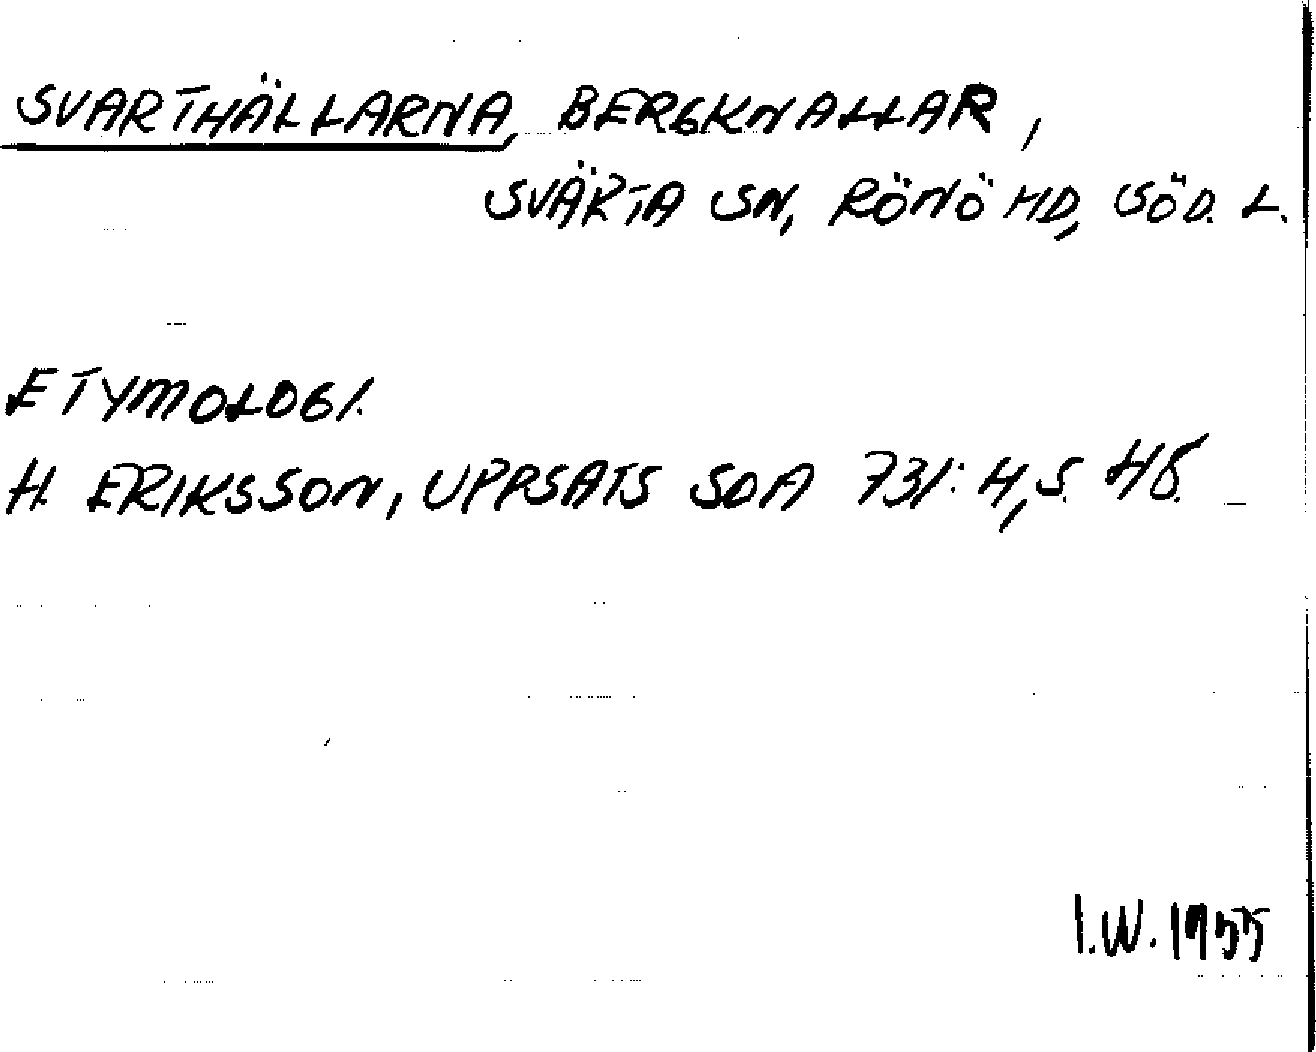 SVARTHÄLLARNA, BERGKNALLAR,
SVÄRTA SN, RÖNÖ HD, SÖD. L.
ETYMOLOGI.
H. ERIKSSON, UPPSATS SOA 731:4, S. 45.
I.W. 1955